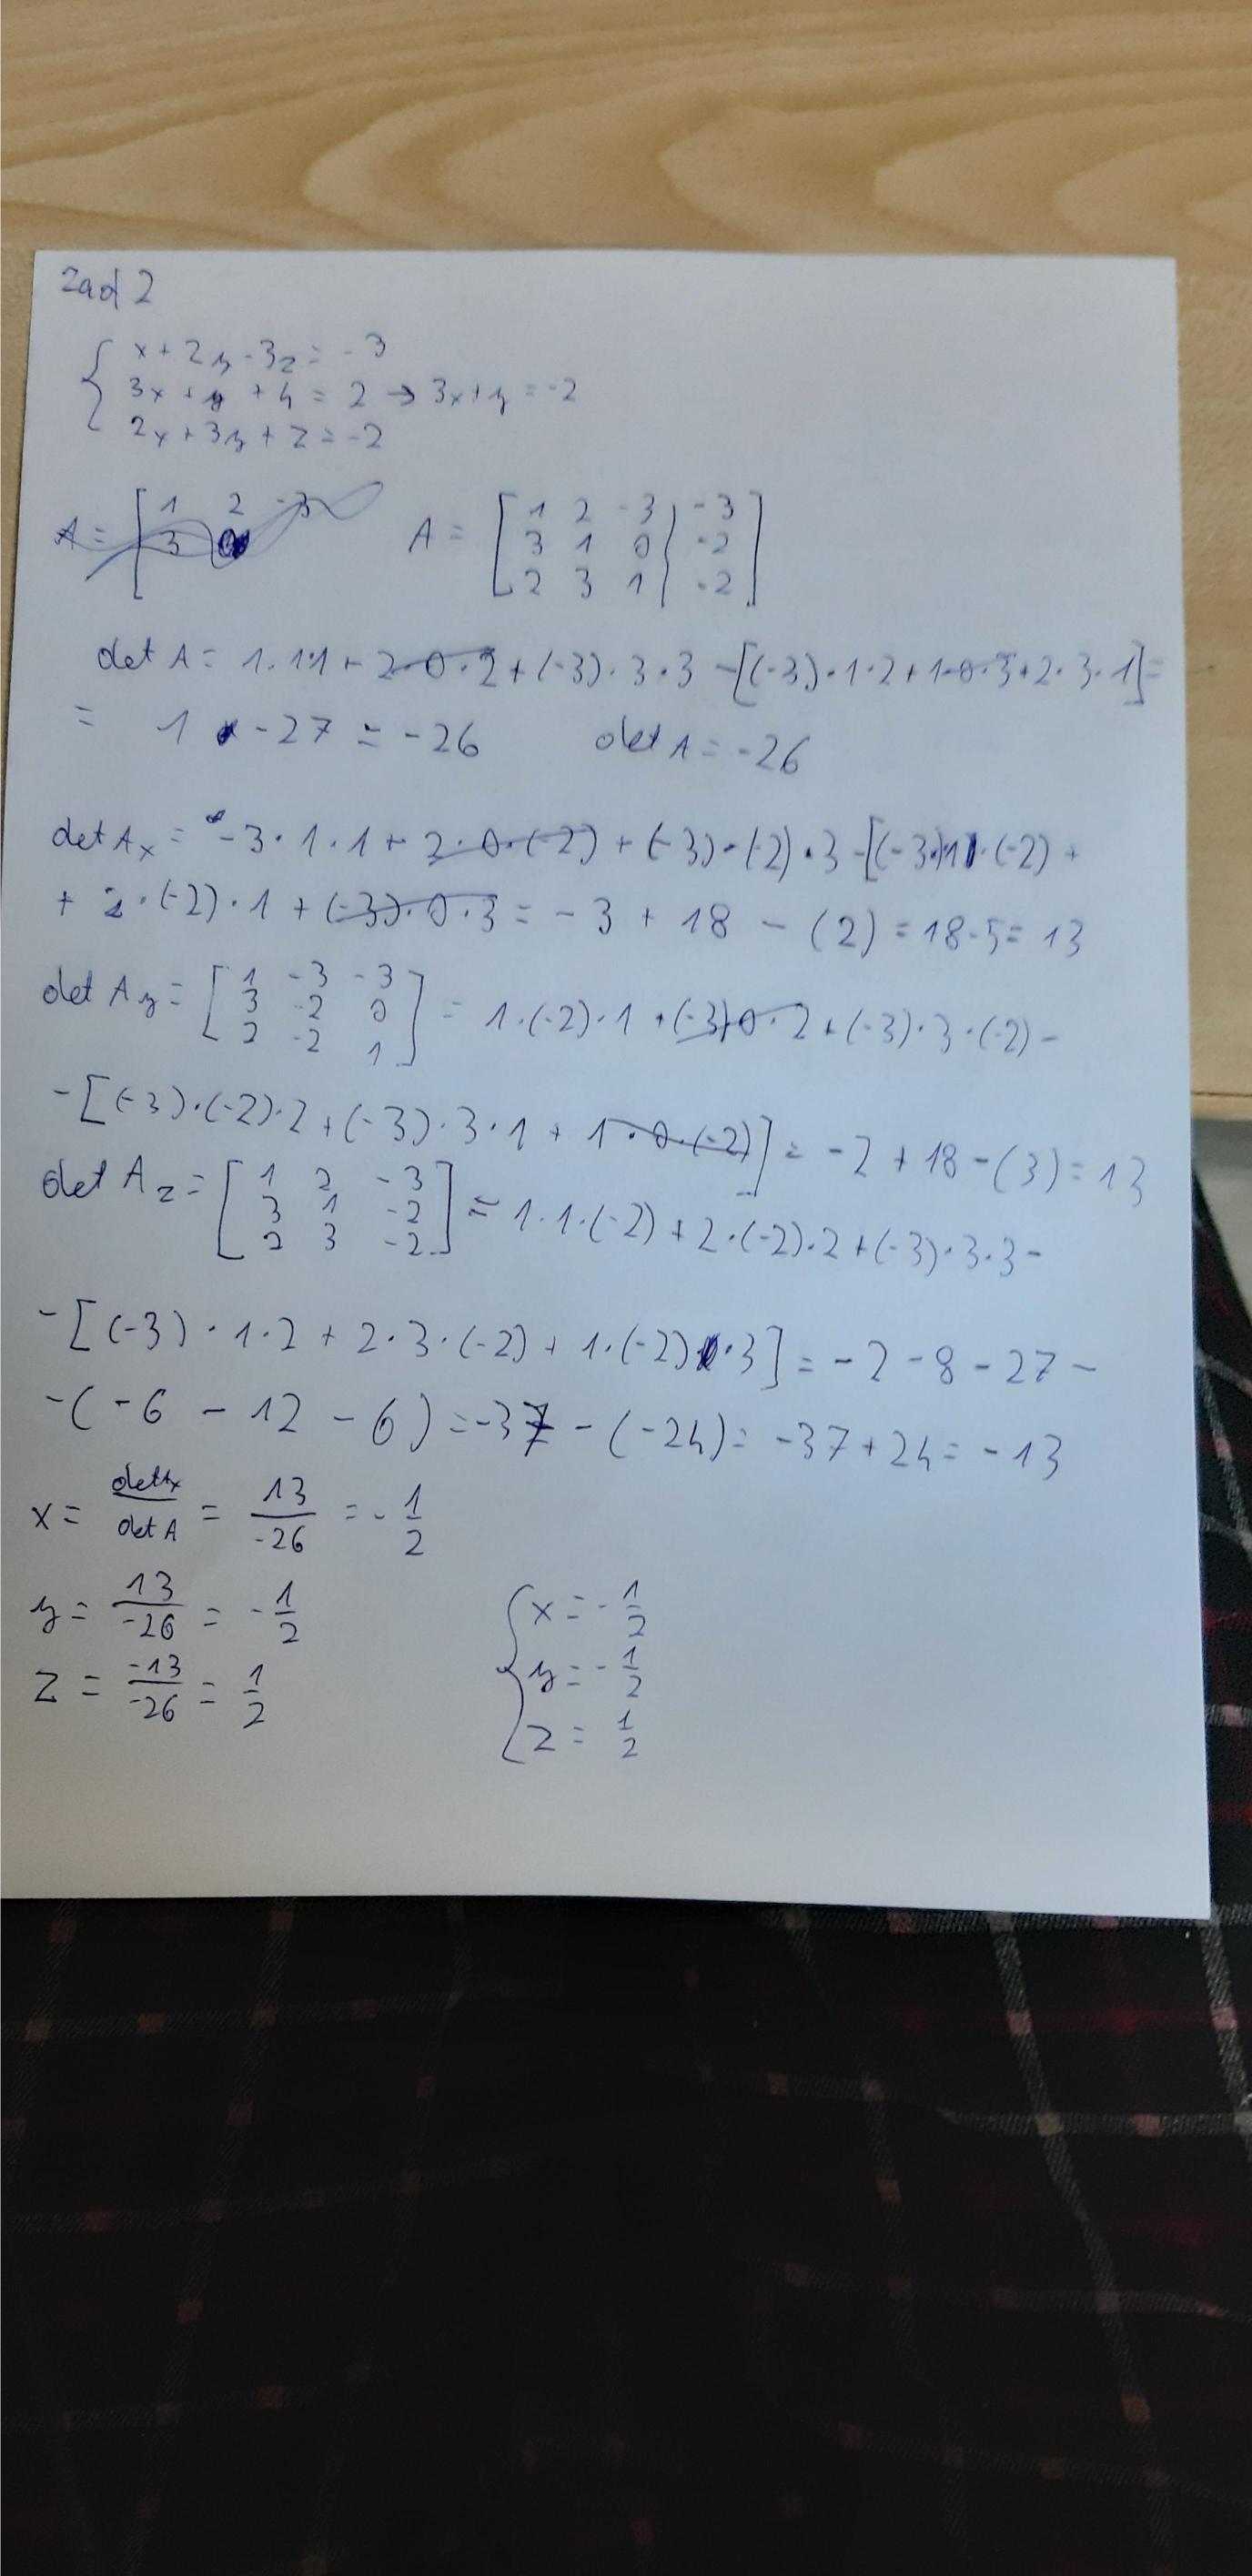 Zad 2
{ x + 2y - 3z = -3
3x + y + 4 = 2 → 3x + y = -2
2x + 3y + z = -2
A = [ 1 2 -3 A = [ 1 2 -3 | -3 ]
3 3 1 0 | -2
2 3 1 | -2
det A = 1·1·1 + 2·0·2 + (-3)·3·3 - [(-3)·1·2 + 1·0·3 + 2·3·1] =
= 1 - 27 = -26 det A = -26
det Ax = -3·1·1 + 2·0·(-2) + (-3)·(-2)·3 - [(-3)·1·(-2) +
+ 2·(-2)·1 + (-3)·0·3 = -3 + 18 - (2) = 18-5 = 13
det Ay = [ 1 -3 -3
3 -2 0
2 -2 1 ] = 1·(-2)·1 + (-3)·0·2 + (-3)·3·(-2) -
- [(-3)·(-2)·2 + (-3)·3·1 + 1·0·(-2)] = -2 + 18 - (3) = 13
det Az = [ 1 2 -3
3 1 -2
2 3 -2 ] = 1·1·(-2) + 2·(-2)·2 + (-3)·3·3 -
- [(-3)·1·2 + 2·3·(-2) + 1·(-2)·3] = -2 - 8 - 27 -
- (-6 - 12 - 6) = -37 - (-24) = -37 + 24 = -13
x = detAx/det A = 13/-26 = -1/2
y = 13/-26 = -1/2
z = -13/-26 = 1/2
{ x = -1/2
y = -1/2
z = 1/2